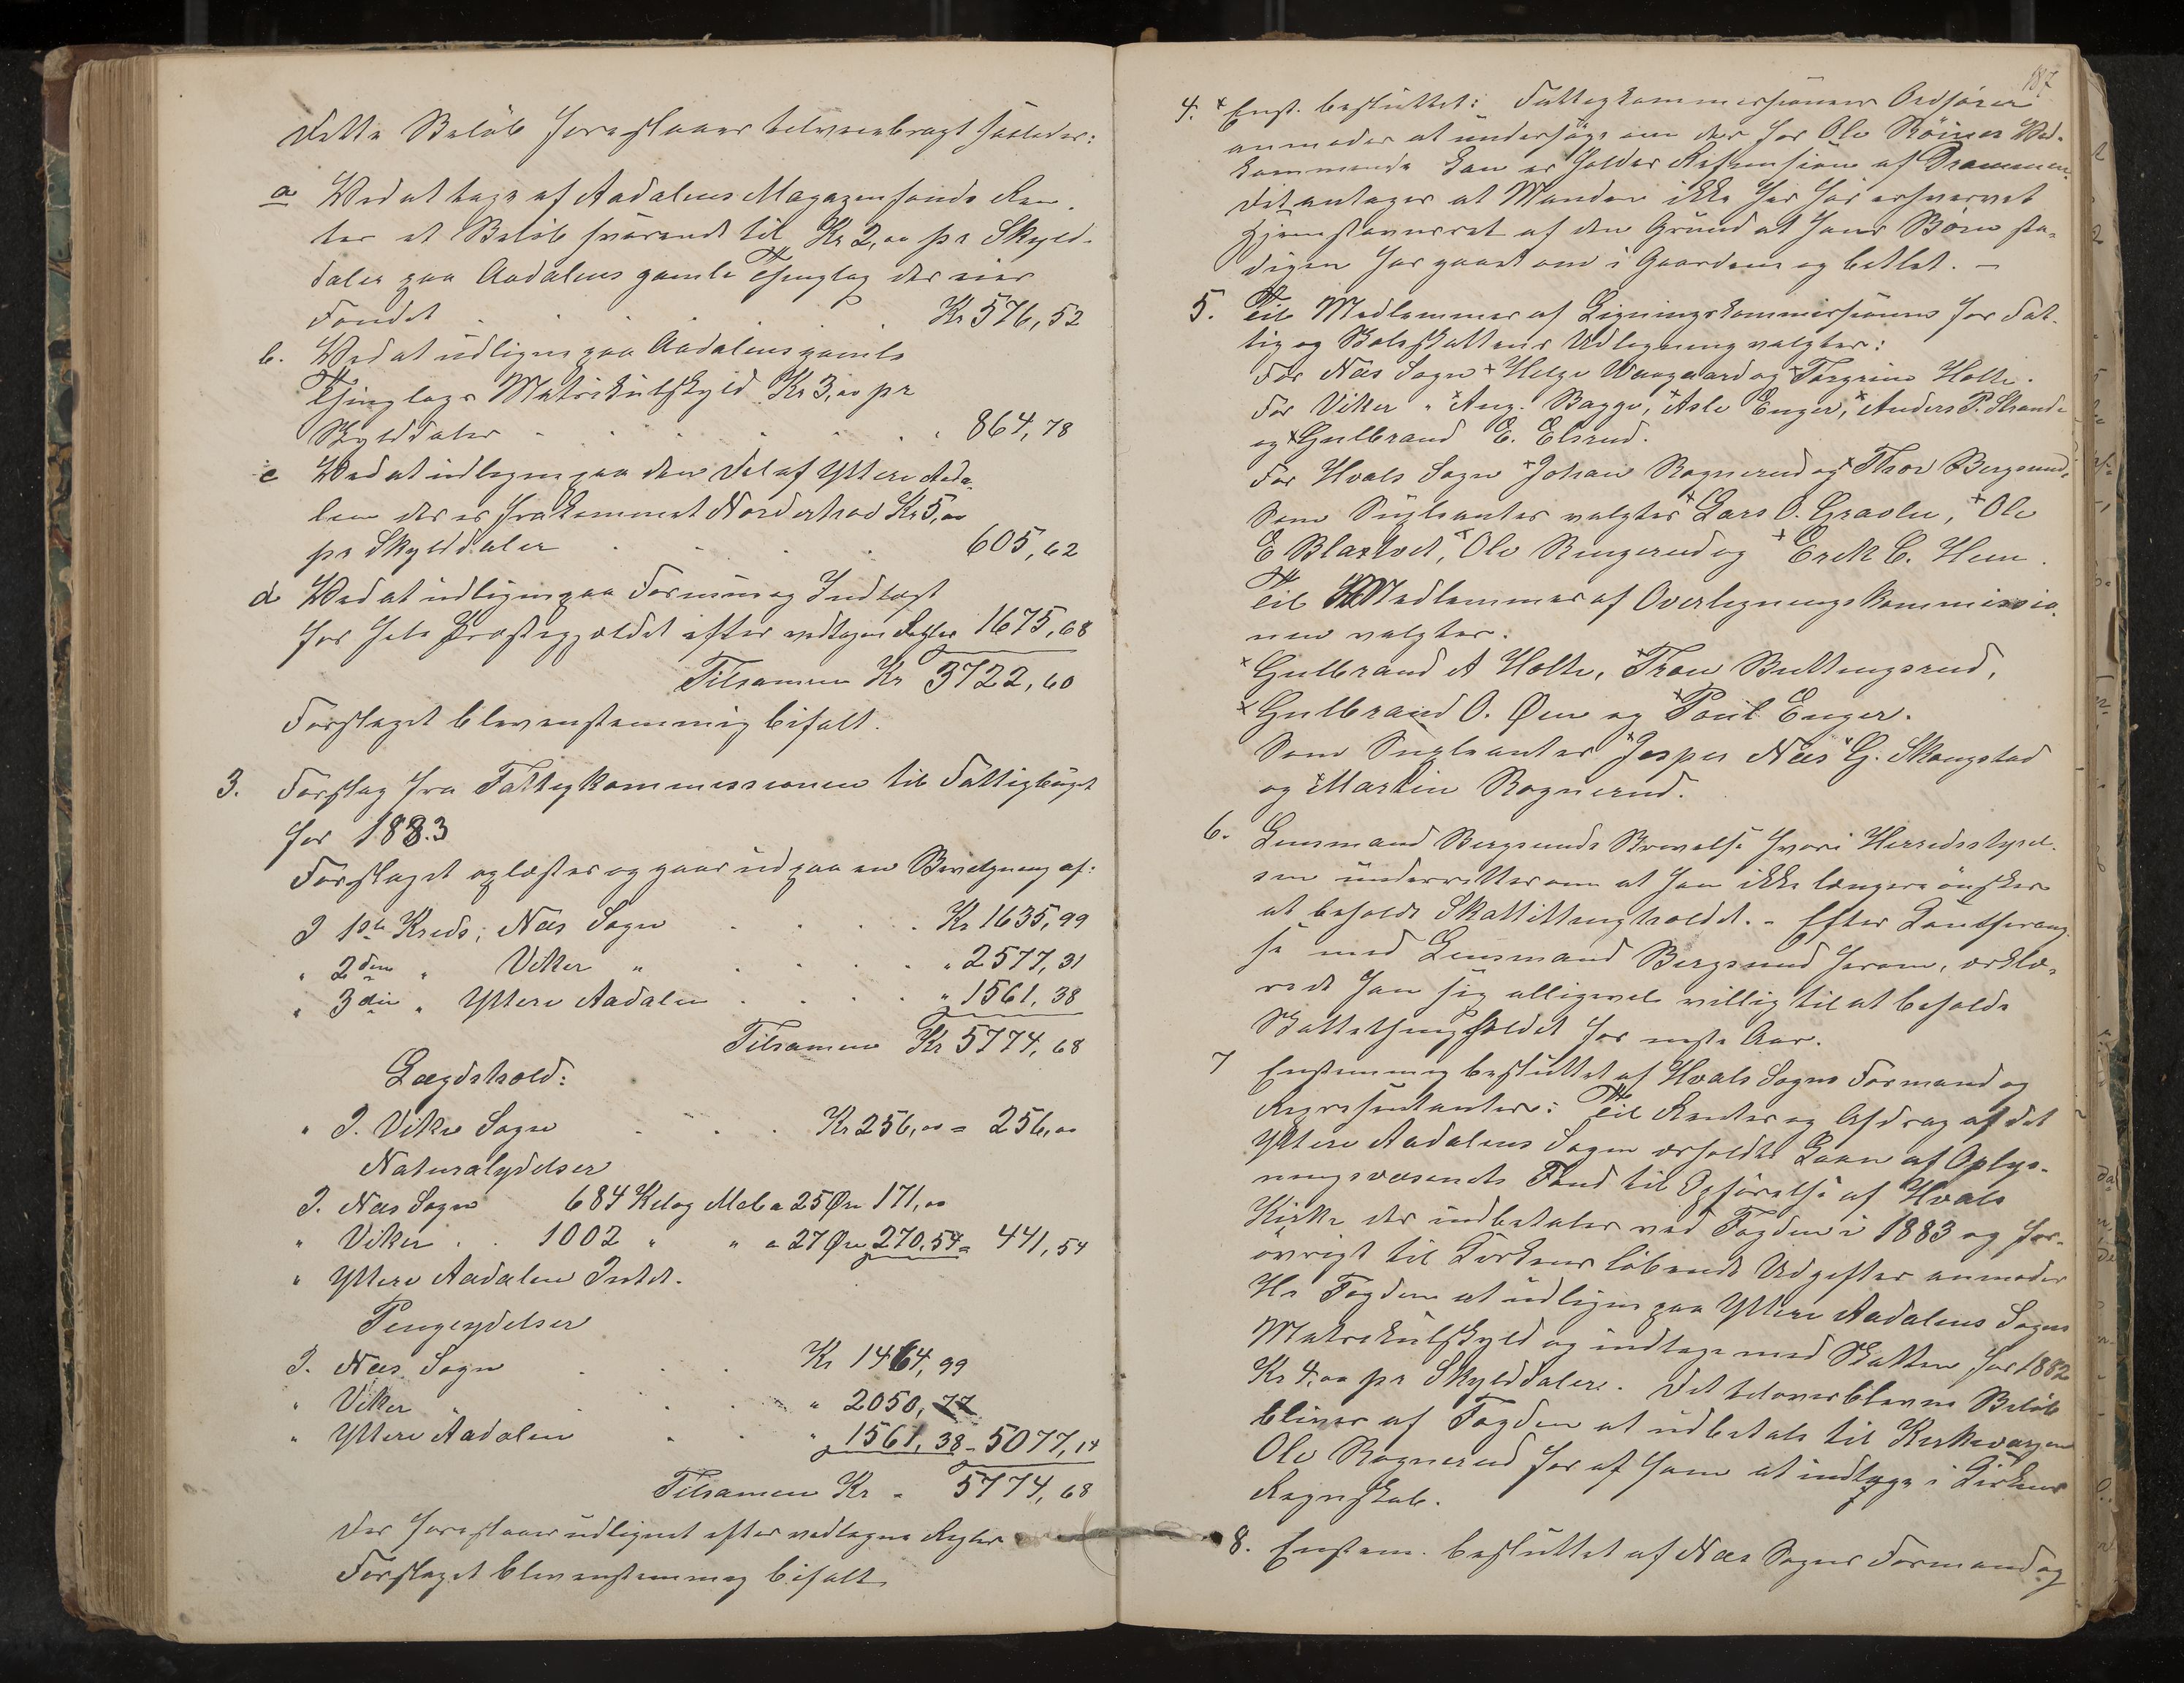 Dette Beløb foreslaaes tilveiebragt saaledes:
a Ved at tage af Aadalens Magazinfonds Ren-
ter et Beløb svarende til Kr 2,00 pr Skyld-
daler paa Aadalens gamle Thinglag der eier
Fondet . . . . . . Kr 576,52
b. Ved at udligne paa Aadalens gamle
Thinglags Matrikulskyld Kr 3,00 pr
Skylddaler . . . . . . 864,78
c Ved at udligne paa den Del af Yttere Aada-
len der er frakommet Norderhov Kr 5,00
pr Skylddaler . . . . 605,62
d Ved at udligne paa Formue og Indtægt
for hele Præstegjældet efter vedtagne Regler 1675,68
Tilsamen Kr 3722,60
Forslaget blev enstemmig bifalt.
3. Forslag fra Fattigkommissionen til Fattigbudget
for 1883
Forslaget oplæstes og gaar ud paa en Bevilgning af:
I 1ste Kreds, Næs Sogn . . . . Kr 1635,99
" 2den " Viker " . . . . " 2577,31
" 3die " Yttere Aadalen . . . . " 1561,38
Tilsamen Kr 5774,68
Lægdshold:
" I. Viker Sogn . . . Kr 256,00 = 256,00
Naturalydelser
I. Næs Sogn 684 Kilog Mel a 25 Øre 171,00
" Viker . . 1002 " " a 27 Øre 270,54 = 441,54
" Yttere Aadalen Intet.
Pengeydelser
I. Næs Sogn . . . Kr 1464,99
" Viker . . . " 2050,77
" Yttere Aadalen . . " 1561,38 - 5077,14
Tilsamen Kr - 5774,68
Der foreslaaes udlignet efter vedtagne Regler
Forslaget blev enstemmig bifalt
187
4. x Enst. besluttet: Fattigkommissionens Ordfører
anmodes at undersøge om der for Ole Ved-
kommende kan erholdes Refusion af Drammen.
Det antages at Manden ikke her har erhvervet
Hjemstavnsret af den Grund at hans Børn sta-
digen har gaaet om i Gaardene og betlet. —
5. Til Medlemmer af Ligningskommissionen for Fat-
tig og Skoleskattens Udligning valgtes:
For Næs Sogn x Helge Waagaard og x Torgrim Holte.
For Viker " x Aug. Bagge, x Asle Enger, x Anders P. Strande
og x Gulbrand E. Elsrud.
For Hvals Sogn x Johan Rognerud og x Thor Bergsund.
Som Supleanter valgtes x Lars O. Graslie, x Ole
E Blakvet, x Ole Ringerud og x Erik E. Hem.
Til Medlemmer af Overligningskommissio-
nen valgtes:
x Gulbrand A Holte, x Tron Buttingsrud,
x Gulbrand O. Øen og x Poul Enger.
Som Supleanter x Jesper Næs x G. Skaugstad
og x Martin Rognerud.
6. Lensmand Bergsunds Skrivelse hvori Herredsstyrel-
sen underrettes om at han ikke længere ønsker
at beholde Skattethingholdet. - Efter Konferan-
se med Lensmand Bergsund herom, erklæ-
rede han sig alligevel villig til at beholde
Skattethingholdet for neste Aar.
7 Enstemmig besluttet af Hvals Sogns Formænd og
Repræsentanter: Til Renter og Afdrag af det
Yttere Aadalens Sogn erholdte Laan af Oplys-
ningsvæsenets Fond til Opførelse af Hvals
Kirke der indbetales ved Fogden i 1883 og for-
øvrigt til Kirkens løbende Udgifter anmodes
Hr Fogden at udligne paa Yttere Aadalens Sogns
Matrikulskyld og indtage med Skatten for 1882
Kr 4,00 pr Skylddaler. Det tiloversblevne Beløb
bliver af Fogden at udbetale til Kirkevergen
Ole Rognerud for af ham at indtage i Kirkens
Regnskab.
8. Enstem. besluttet af Næs Sogns Formænd og